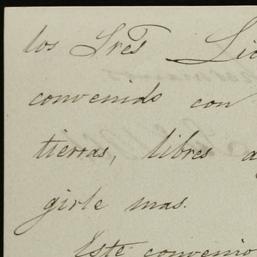 los Sres Lic
convenido con
tierras, libres a
girle mas.
Este convenio